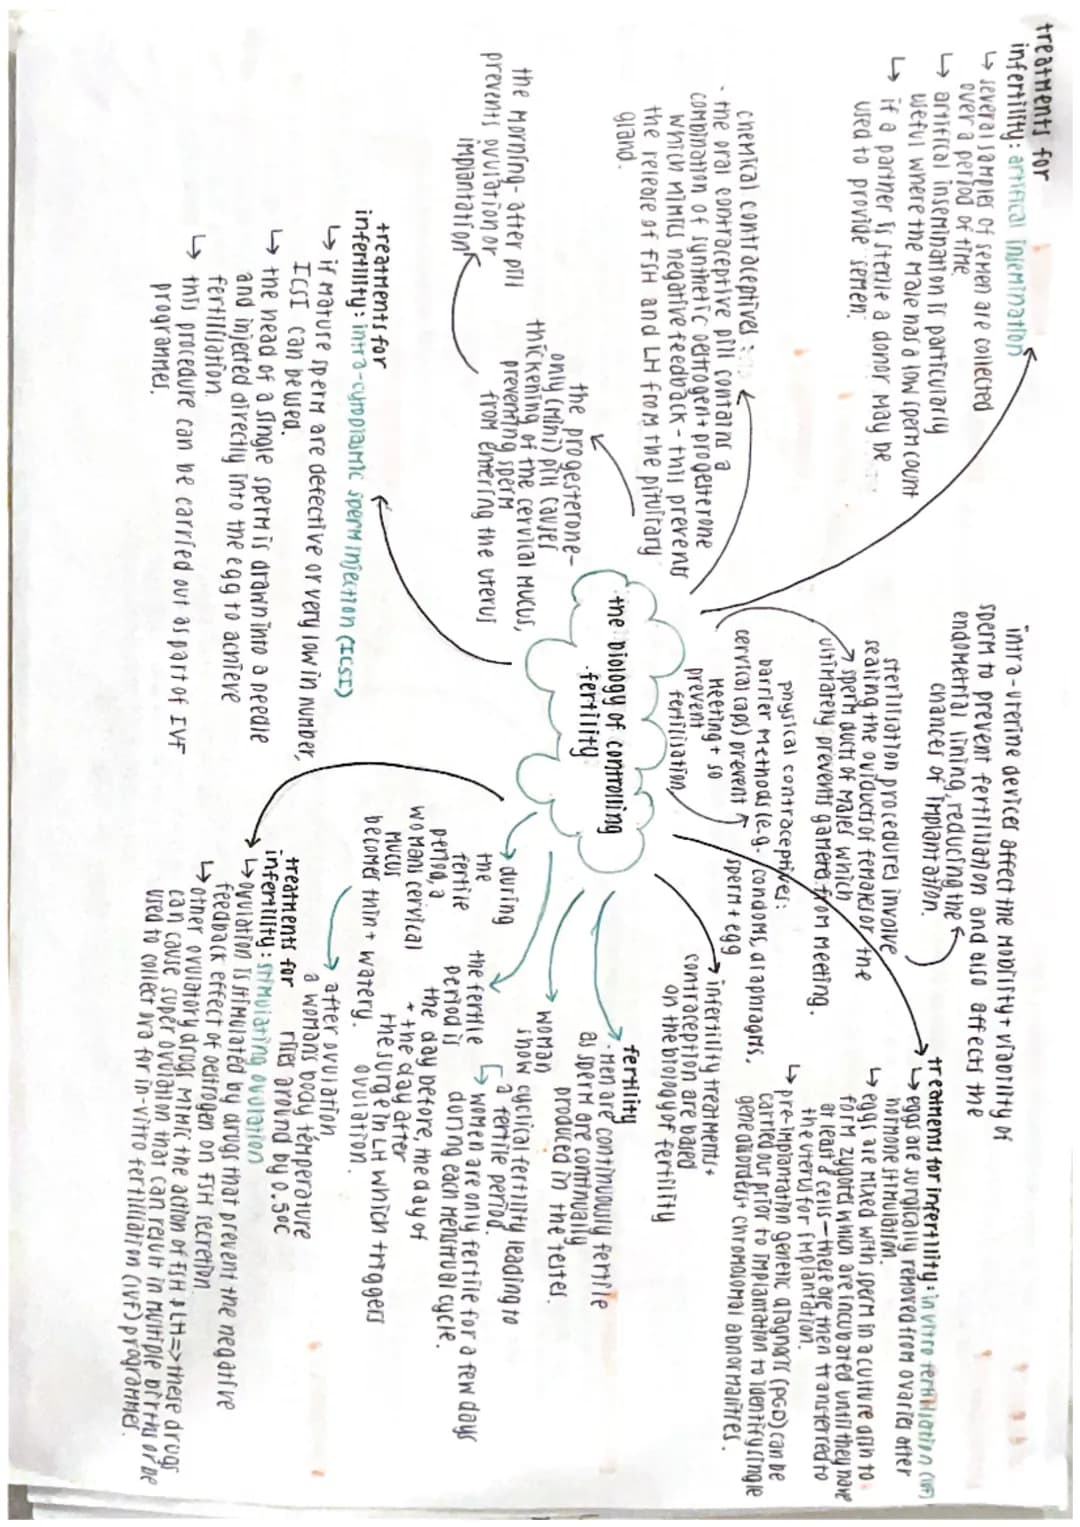 treatments for
infertility: artifical insemination
↳ several samples of semen are collected
over a period of time.
↳ artifical insemination is particularly
useful where the male has a low sperm count
↳ if a partner is sterile a donor may be
used to provide semen.
chemical contraceptives:
· the oral contraceptive pill contains a
combination of synthetic oestrogen + progesterone
which mimics negative feedback - this prevents
the release of FSH and LH from the pituitary
gland.
the progesterone-
only (mini) pill causes
thickening of the cervical mucus,
preventing sperm
from entering the uterus
the morning-after pill
prevents ovulation or
implantation
treatments for
infertility: intra-cytoplasmic sperm injection (ICSI)
↳ if mature sperm are defective or very low in number,
ICSI can be used.
↳ the head of a single sperm is drawn into a needle
and injected directly into the egg to achieve
fertilisation.
↳ this procedure can be carried out as part of IVF
programmes.
the biology of controlling
fertility
intra-uterine devices affect the mobility + viability of
sperm to prevent fertilisation and also affects the
endometrial lining, reducing the
chances of implantation.
sterilisation procedures involve
sealing the oviducts of females or the
sperm ducts of males which
ultimately prevents gametes from meeting.
physical contraceptives:
barrier methods (e.g. condoms, diaphragms,
cervical caps) prevent sperm + egg
meeting + so
prevent
fertilisation.
treatments for infertility: in vitro fertilisation (IVF)
↳ eggs are surgically removed from ovaries after
hormone stimulation.
↳ eggs are mixed with sperm in a culture dish to
form zygotes which are incubated until they have
at least 8 cells - these are then transferred to
the uterus for implantation.
↳ pre-implantation genetic diagnosis (PGD) can be
carried out prior to implantation to identify single
gene disorders + chromosomal abnormalities.
infertility treatments +
contraception are based
on the biology of fertility
fertility
· men are continuously fertile
as sperm are continually
produced in the testes.
woman
show cyclical fertility leading to
a fertile period.
↳ women are only fertile for a few days
during each menstrual cycle.
the fertile
period is
the day before, the day of
+ the day after
the surge in LH which triggers
ovulation.
during
the
fertile
period, a
womans cervical
mucus
becomes thin + watery.
after ovulation
a womans body temperature
rises around by 0.5°C
treatments for
infertility: stimulating ovulation
↳ ovulation is stimulated by drugs that prevent the negative
feedback effect of oestrogen on FSH secretion
↳ other ovulatory drugs mimic the action of FSH & LH => these drugs
can cause super ovulation that can result in multiple births or be
used to collect ova for in-vitro fertilisation (IVF) programmes.